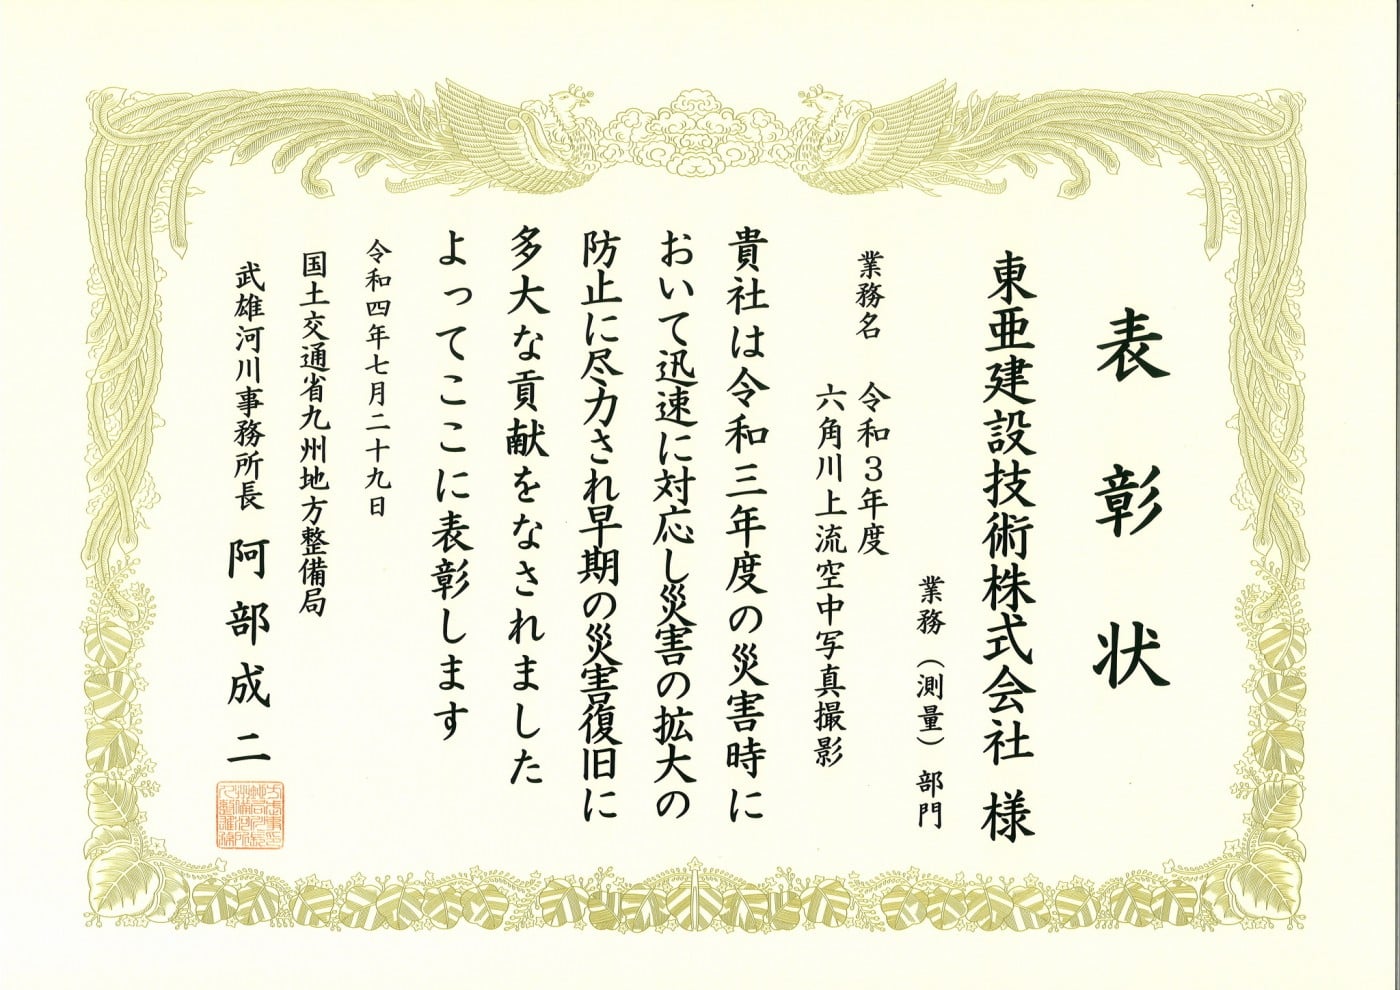 表彰状
東亜建設技術株式会社 様
業務（測量）部門
業務名 令和３年度
六角川上流空中写真撮影
貴社は令和三年度の災害時に
おいて迅速に対応し災害の拡大の
防止に尽力され早期の災害復旧に
多大な貢献をなされました
よってここに表彰します
令和四年七月二十九日
国土交通省九州地方整備局
武雄河川事務所長 阿部成二